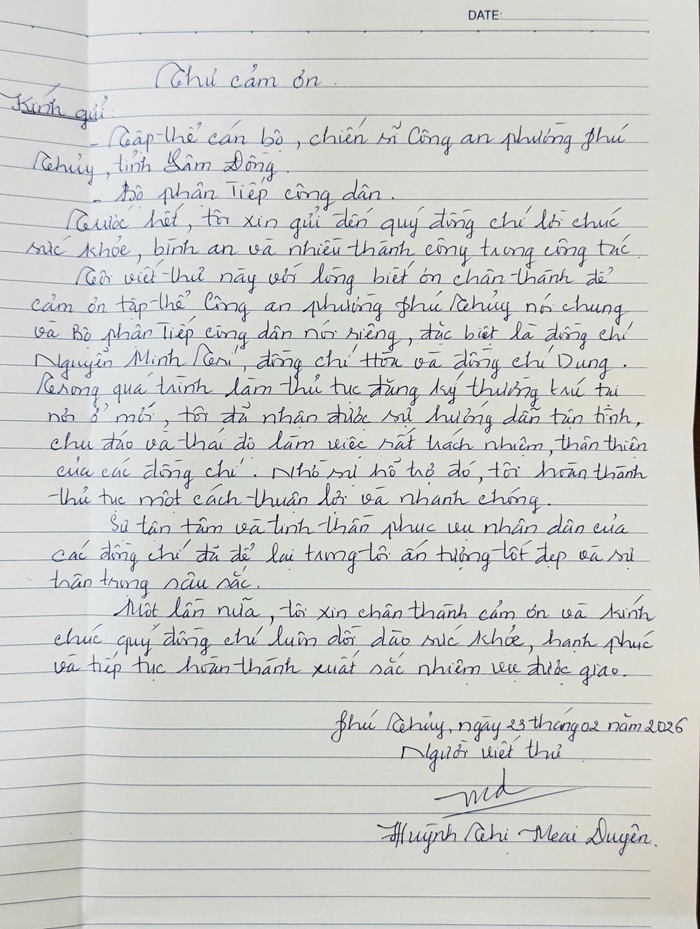 DATE:
Thư cảm ơn.
Kính gửi:
- Tập thể cán bộ, chiến sĩ Công an phường Phú
Thủy, tỉnh Lâm Đồng.
- Bộ phận Tiếp công dân.
Trước hết, tôi xin gửi đến quý đồng chí lời chúc
sức khỏe, bình an và nhiều thành công trong công tác.
Tôi viết thư này với lòng biết ơn chân thành để
cảm ơn tập thể Công an phường Phú Thủy nói chung
và Bộ phận Tiếp công dân nói riêng, đặc biệt là đồng chí
Nguyễn Minh Trí, đồng chí Hòa và đồng chí Dung.
Trong quá trình làm thủ tục đăng ký thường trú tại
nơi ở mới, tôi đã nhận được sự hướng dẫn tận tình,
chu đáo và thái độ làm việc rất trách nhiệm, thân thiện
của các đồng chí. Nhờ sự hỗ trợ đó, tôi hoàn thành
thủ tục một cách thuận lợi và nhanh chóng.
Sự tận tâm và tinh thần phục vụ nhân dân của
các đồng chí đã để lại trong tôi ấn tượng tốt đẹp và sự
trân trọng sâu sắc.
Một lần nữa, tôi xin chân thành cảm ơn và kính
chúc quý đồng chí luôn dồi dào sức khỏe, hạnh phúc
và tiếp tục hoàn thành xuất sắc nhiệm vụ được giao.
Phú Thủy, ngày 23 tháng 02 năm 2026
Người viết thư
Huỳnh Thị Meai Duyên.